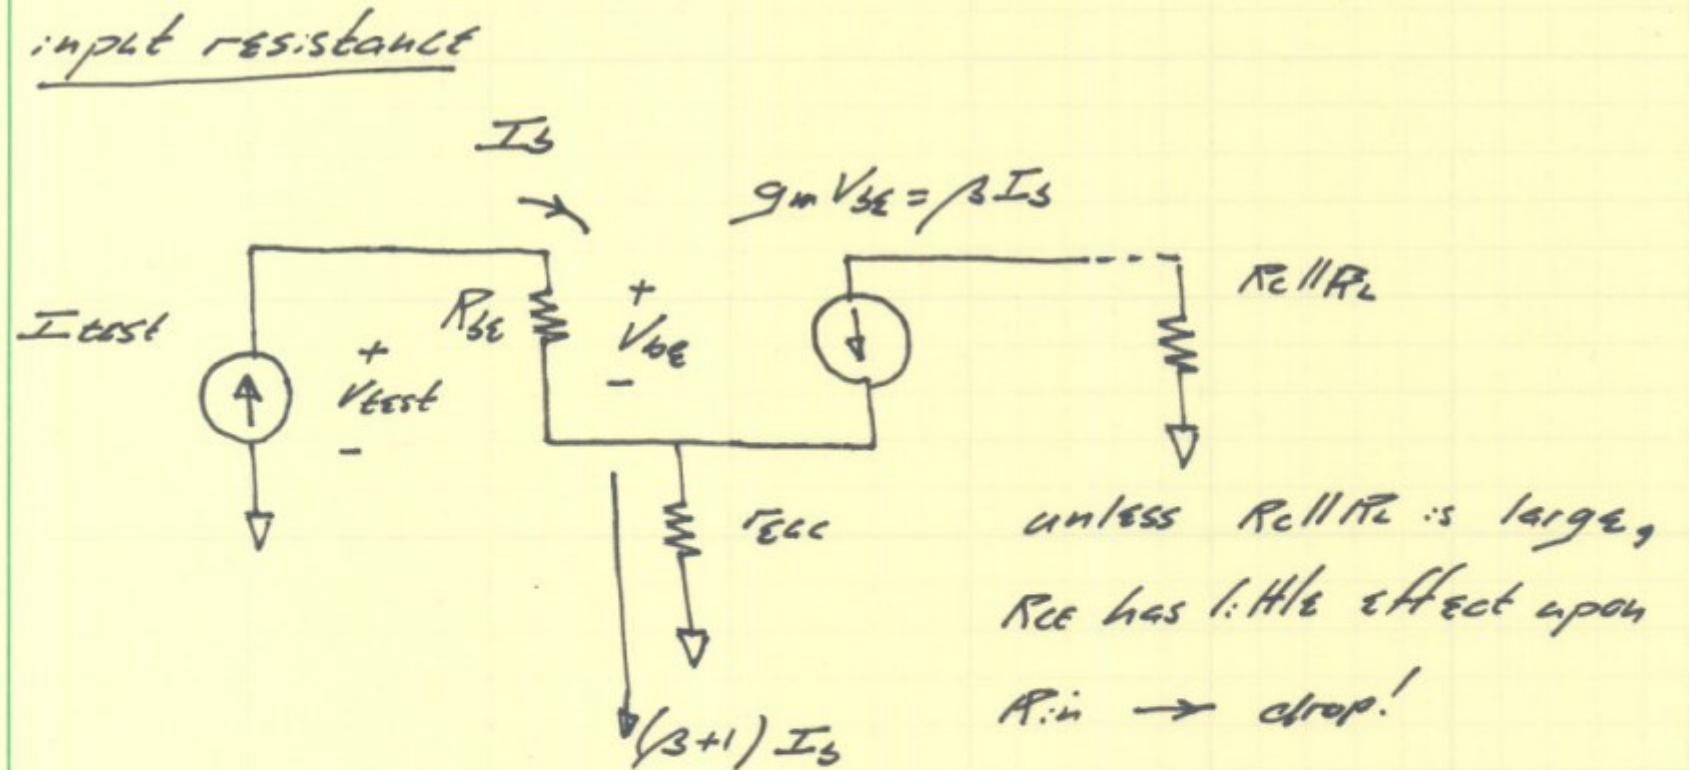 input resistance
Ib
gm Vbe = β Ib
Itest
+
Vtest
-
Rbe
+
Vbe
-
Rc//RL
unless Rc//RL is large,
RCE has little effect upon
Rin → drop!
(β+1) Ib